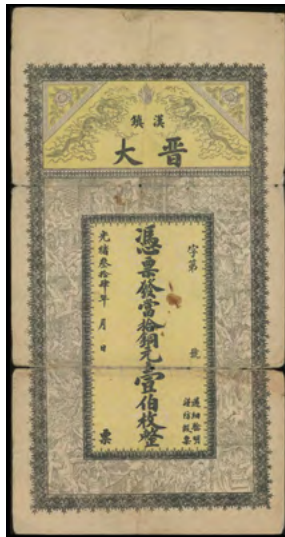 漢鎮
晋大
字第 號
憑票發當拾銅元壹伯枚整
光緒叁拾肆年 月 日 票